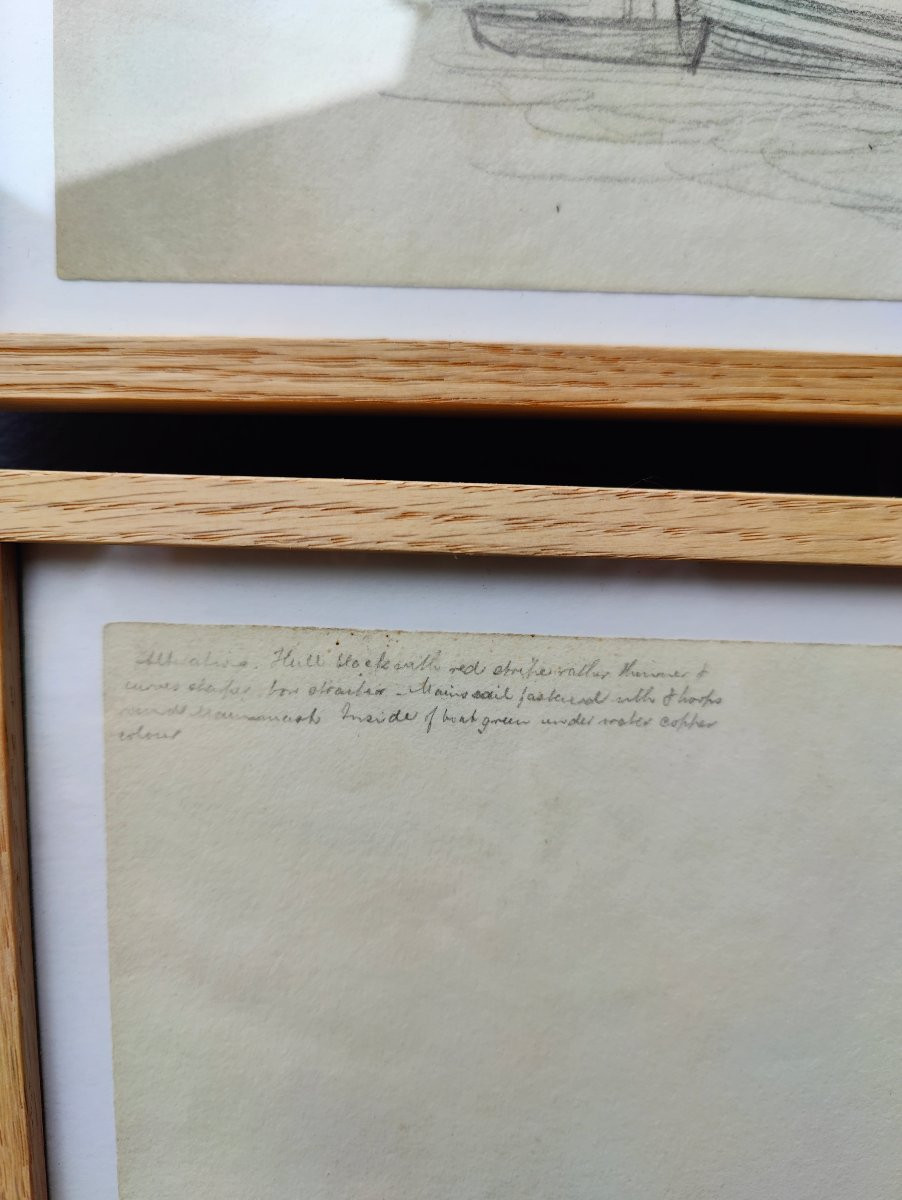 Alterations. Hull black with red stripe rather thinner &
curves sharper bow straiter - Mainsail fastened with 8 hoops
round Mainmast Inside of boat green under water copper
colour